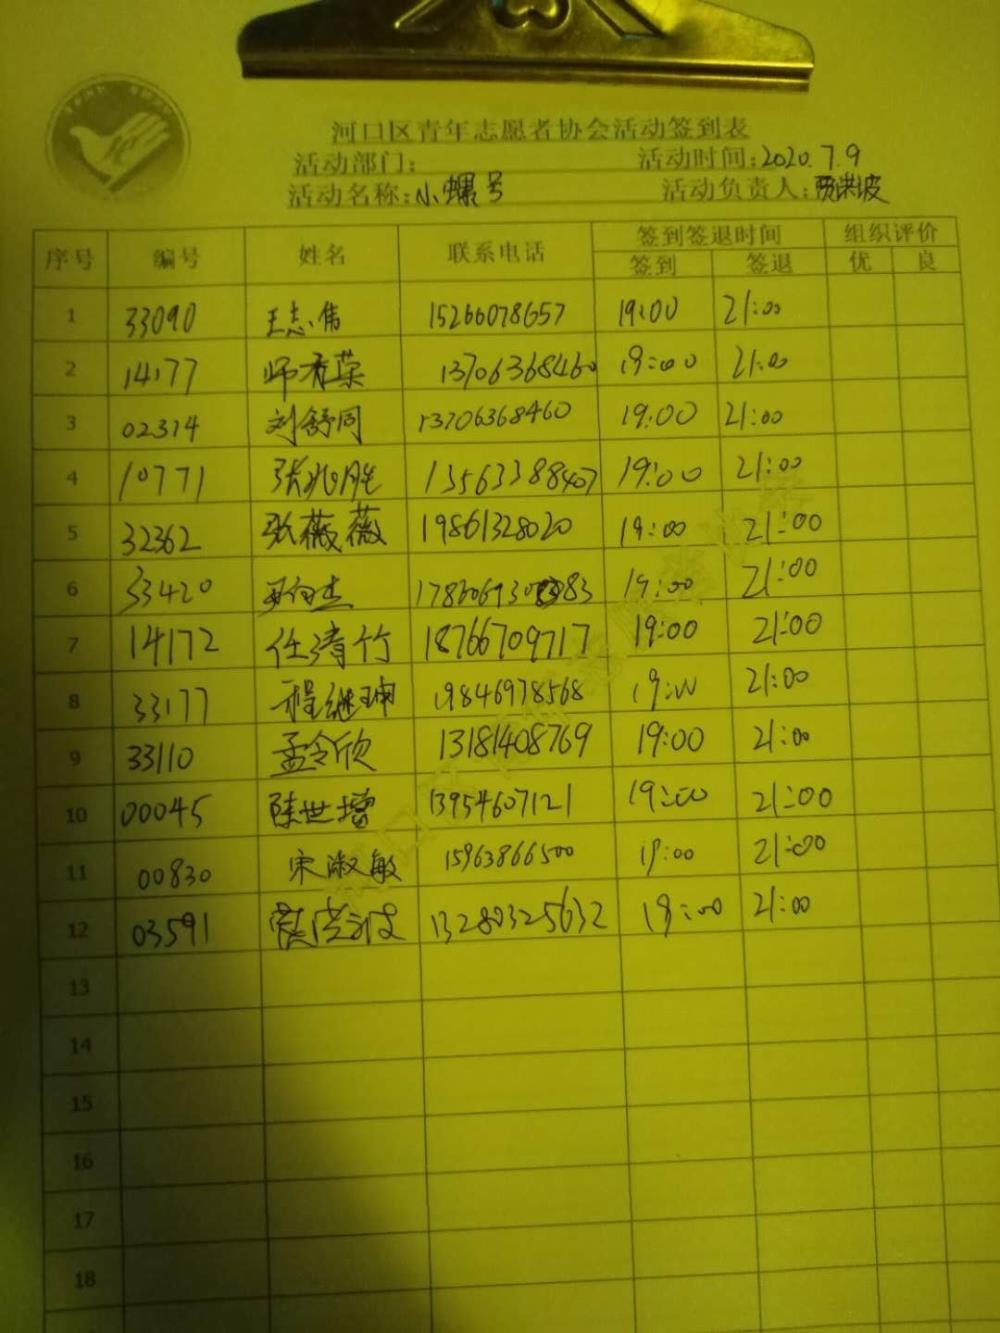 河口区青年志愿者协会活动签到表
活动部门: 活动时间:2020.7.9
活动名称:小螺号 活动负责人:贾洪波
序号 编号 姓名 联系电话 签到签退时间 组织评价
签到 签退 优 良
1 33090 王志伟 15266078657 19:00 21:00
2 14177 师秀荣 13706368460 19:00 21:00
3 02314 刘舒同 13706368460 19:00 21:00
4 10771 张兆胜 13563388407 19:00 21:00
5 32362 张薇薇 19861328020 19:00 21:00
6 33420 19:00 21:00
7 14172 任清竹 18766709717 19:00 21:00
8 33177 程继珊 19846978568 19:00 21:00
9 33110 孟令欣 13181408769 19:00 21:00
10 00045 陈世增 13954607121 19:00 21:00
11 00830 宋淑敏 15963866500 19:00 21:00
12 03591 贾洪波 13280325632 19:00 21:00
13
14
15
16
17
18